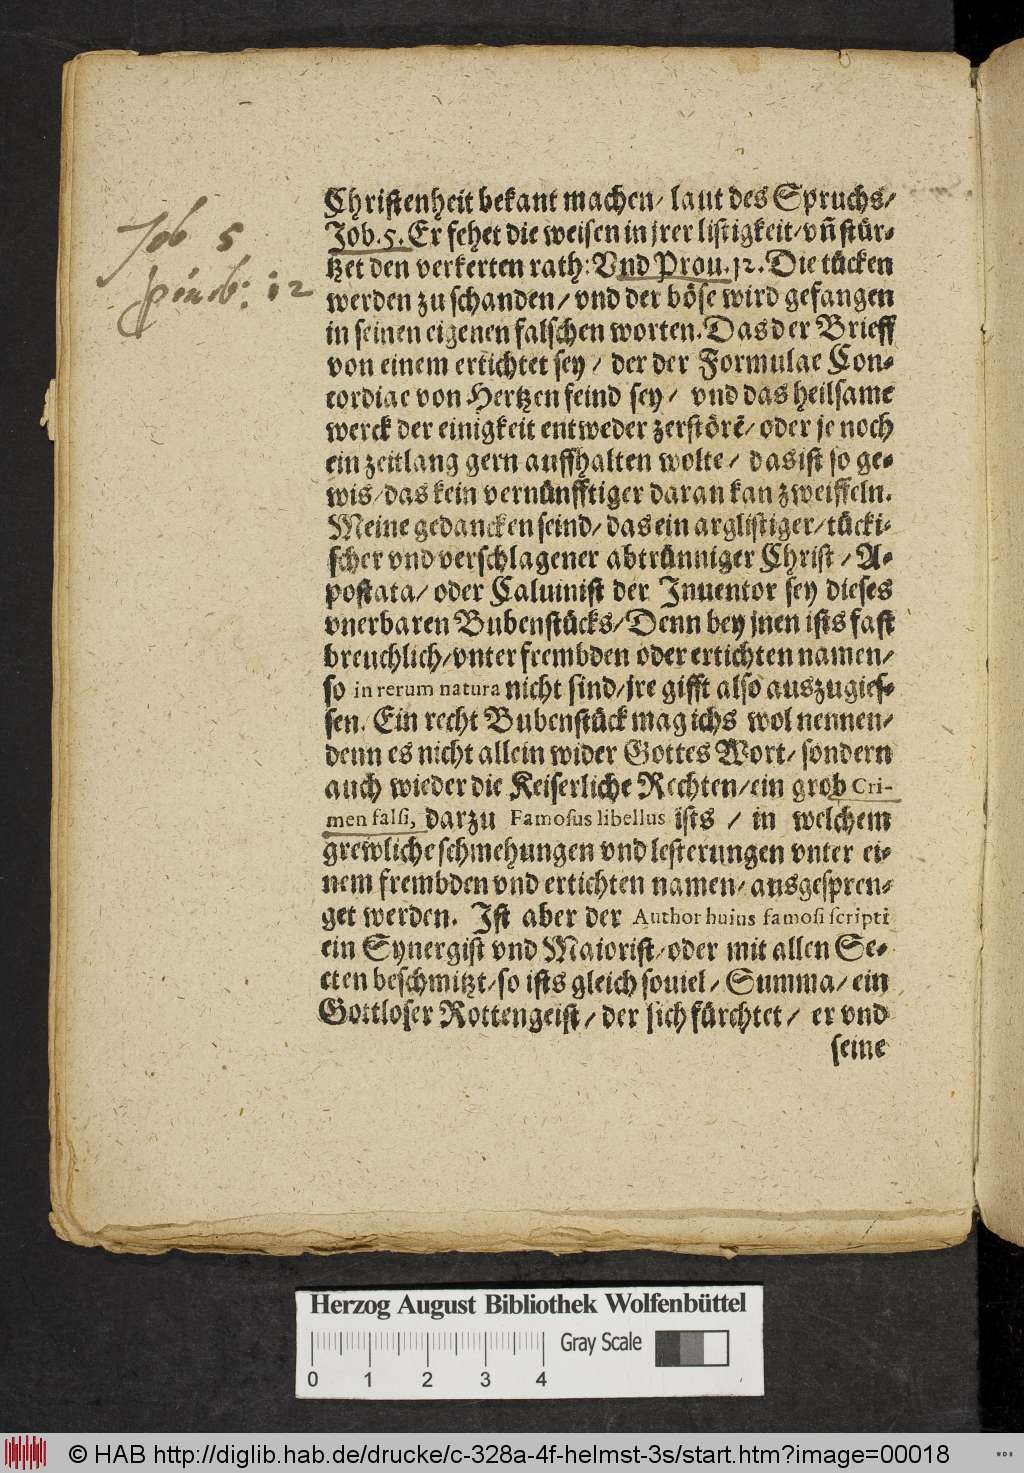 Job 5
prouerb: 12
Christenheit bekant machen/ laut des Spruchs/
Job. 5. Er fehet die weisen in jrer listigkeit/ vn̄ stür-
tzet den verkerten rath: Vnd Prou. 12. Die tücken
werden zu schanden/ vnd der böse wird gefangen
in seinen eigenen falschen worten. Das der Brieff
von einem ertichtet sey/ der der Formulae Con-
cordiae von Hertzen feind sey/ vnd das heilsame
werck der einigkeit entweder zerstörē/ oder je noch
ein zeitlang gern auffhalten wolte/ das ist so ge-
wis/ das kein vernünfftiger daran kan zweiffeln.
Meine gedancken seind/ das ein arglistiger/ tücki-
scher vnd verschlagener abtrünniger Christ/ A-
postata/ oder Caluinist der Inuentor sey dieses
vnerbaren Bubenstücks/ Denn bey jnen ists fast
breuchlich/ vnter frembden oder ertichten namen/
so in rerum natura nicht sind/ jre gifft also auszugies-
sen. Ein recht Bubenstück mag ichs wol nennen/
denn es nicht allein wider Gottes Wort/ sondern
auch wieder die Keiserliche Rechten/ ein grob Cri-
men falsi, darzu Famosus libellus ists / in welchem
grewliche schmehungen vnd lesterungen vnter ei-
nem frembden vnd ertichten namen/ ausgespren-
get werden. Ist aber der Author huius famosi scripti
ein Synergist vnd Maiorist/ oder mit allen Se-
cten beschmitzt/ so ists gleich souiel/ Summa/ ein
Gottloser Rottengeist/ der sich fürchtet/ er vnd
seine
Herzog August Bibliothek Wolfenbüttel
Gray Scale
0 1 2 3 4
© HAB http://diglib.hab.de/drucke/c-328a-4f-helmst-3s/start.htm?image=00018